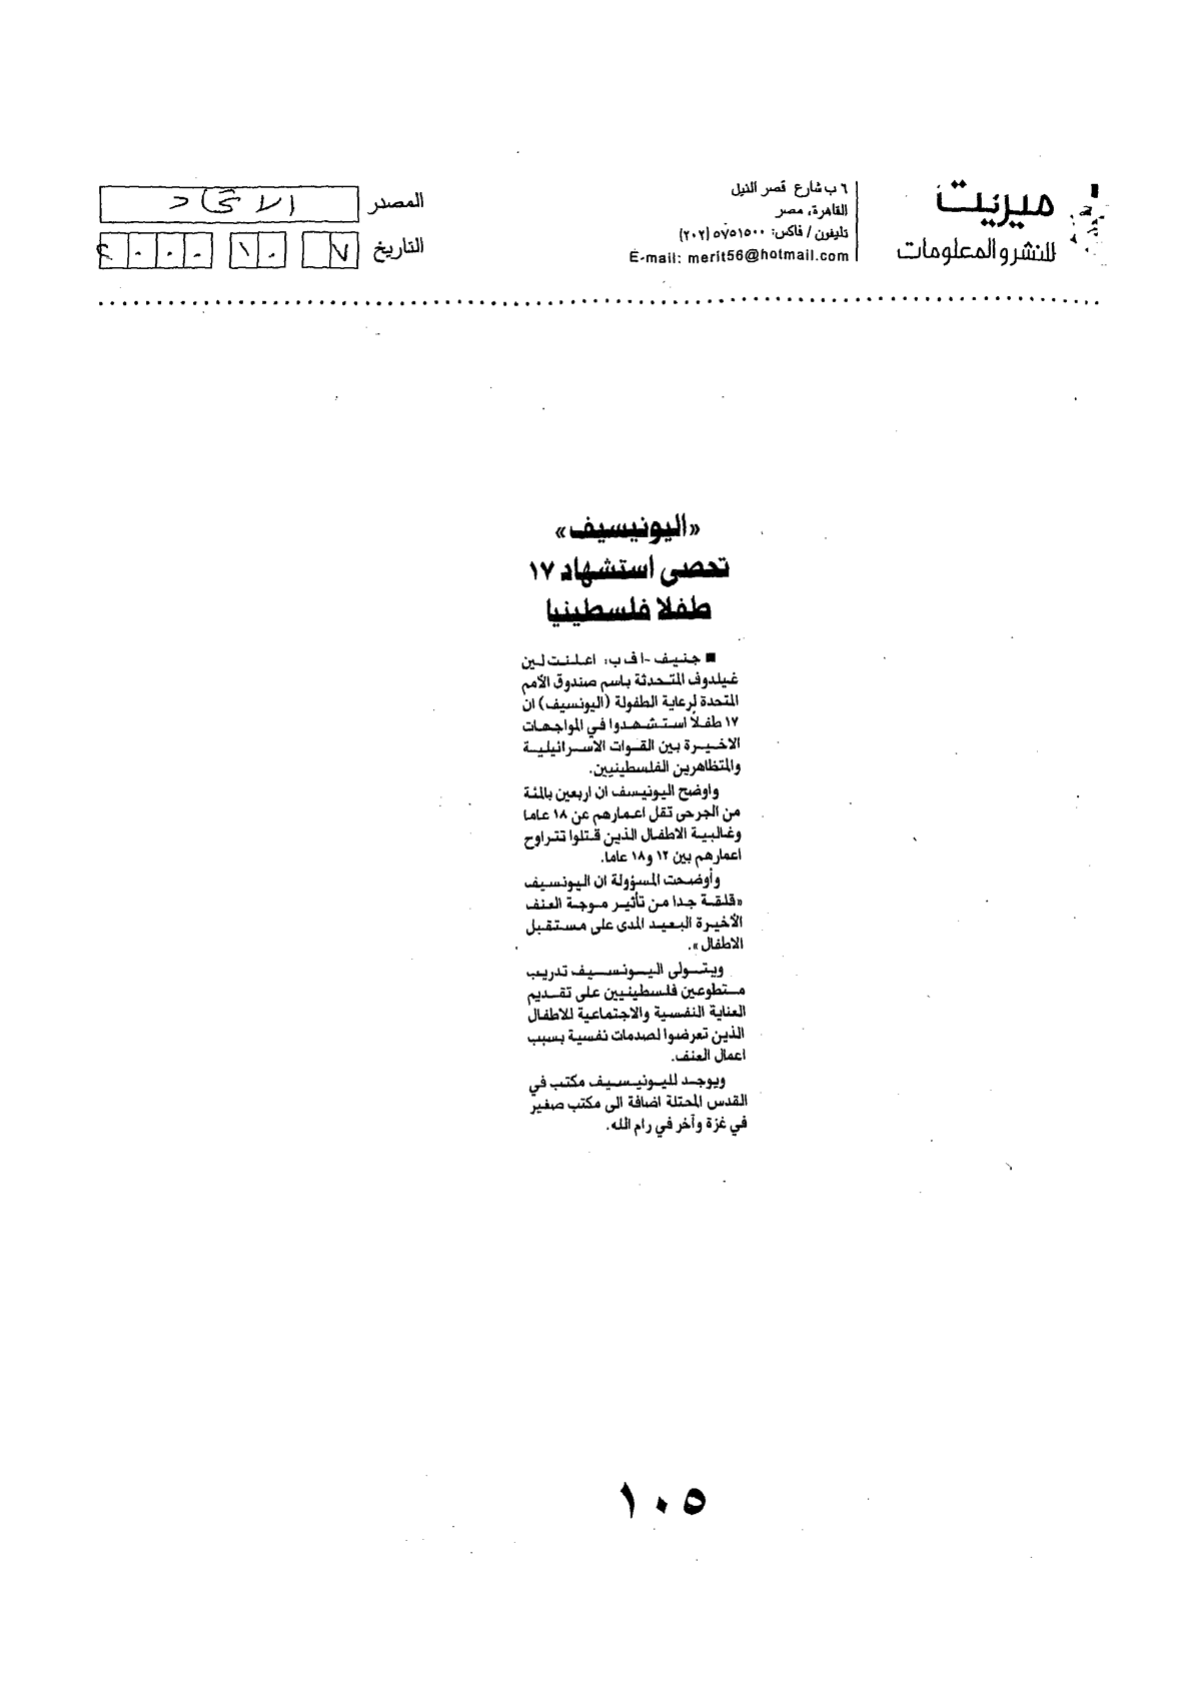 ميريت
للنشر والمعلومات
٦ ب شارع قصر النيل
القاهرة، مصر
تليفون / فاكس: ٥٧٥١٥٠٠ (٢٠٢)
E-mail: merit56@hotmail.com
المصدر الاتحاد
التاريخ ٧ ١٠ ٢٠٠٠
«اليونيسيف»
تحصى استشهاد ١٧
طفلا فلسطينيا
■ جنيف -ا ف ب: اعلنت لين
غيلدوف المتحدثة باسم صندوق الأمم
المتحدة لرعاية الطفولة (اليونسيف) ان
١٧ طفلاً استشهدوا في المواجهات
الاخيرة بين القوات الاسرائيلية
والمتظاهرين الفلسطينيين.
واوضح اليونيسف ان اربعين بالمئة
من الجرحى تقل اعمارهم عن ١٨ عاما
وغالبية الاطفال الذين قتلوا تتراوح
اعمارهم بين ١٢ و١٨ عاما.
وأوضحت المسؤولة ان اليونسيف
«قلقة جدا من تأثير موجة العنف
الأخيرة البعيد المدى على مستقبل
الاطفال».
ويتولى اليونسيف تدريب
متطوعين فلسطينيين على تقديم
العناية النفسية والاجتماعية للاطفال
الذين تعرضوا لصدمات نفسية بسبب
اعمال العنف.
ويوجد لليونيسيف مكتب في
القدس المحتلة اضافة الى مكتب صغير
في غزة وآخر في رام الله.
١٠٥